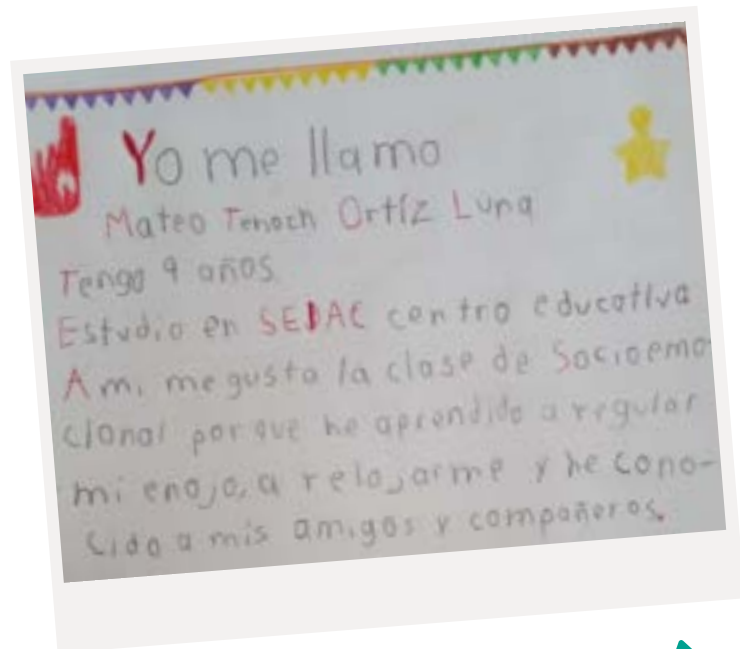 Yo me llamo
Mateo Tenoch Ortíz Luna
Tengo 9 años
Estudio en SEDAC centro educativa
A mi me gusta la clase de Socioemo-
cional porque he aprendido a regular
mi enojo, a relajarme y he cono-
cido a mis amigos y compañeros.